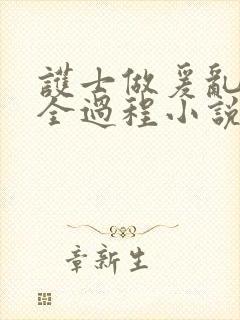 護士做爰亂
全過程小說
章新生